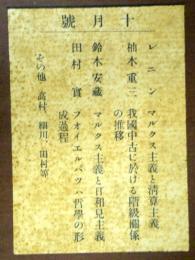 十月號
レニン マルクス主義と清算主義
柚木重三 我國中古に於ける階級關係
の推移
鈴木安蔵 マルクス主義と日和見主義
田村實 フオイエルバッハ哲學の形
成過程
その他 高村、細川、田村等